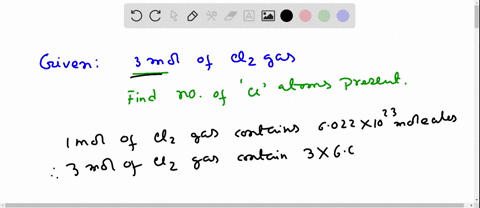 Given: 3 mol of Cl2 gas
Find no. of 'Cl' atoms present.
1 mol of Cl2 gas contains 6.022 × 10^23 molecules
∴ 3 mol of Cl2 gas contain 3 × 6.0